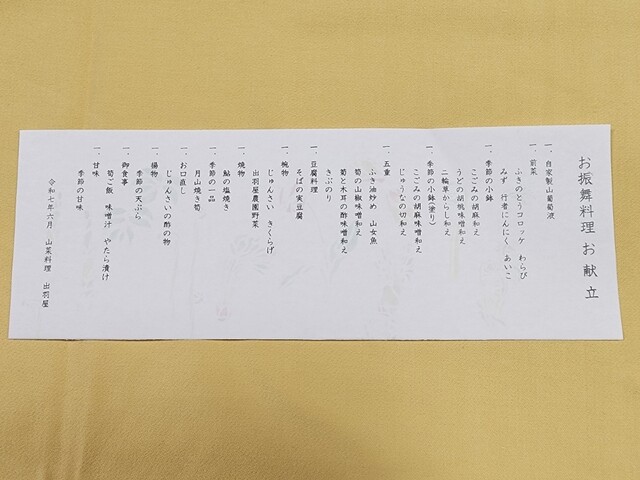 お振舞料理 お献立
一、自家製山葡萄液
一、前菜
ふきのとうコロッケ わらび
みず 行者にんにく あいこ
一、季節の小鉢
こごみの胡麻和え
うどの胡桃味噌和え
二輪草からし和え
一、季節の小鉢(塗り)
こごみの胡麻味噌和え
じゅうなの切和え
一、五重
ふき油炒め 山女魚
筍の山椒味噌和え
筍と木耳の酢味噌和え
きぶのり
一、豆腐料理
そばの実豆腐
一、椀物
じゅんさい きくらげ
出羽屋農園野菜
一、焼物
鮎の塩焼き
一、季節の一品
月山焼き筍
一、お口直し
じゅんさいの酢の物
一、揚物
季節の天ぷら
一、御食事
筍ご飯 味噌汁 やたら漬け
一、甘味
季節の甘味
令和七年六月 山菜料理 出羽屋